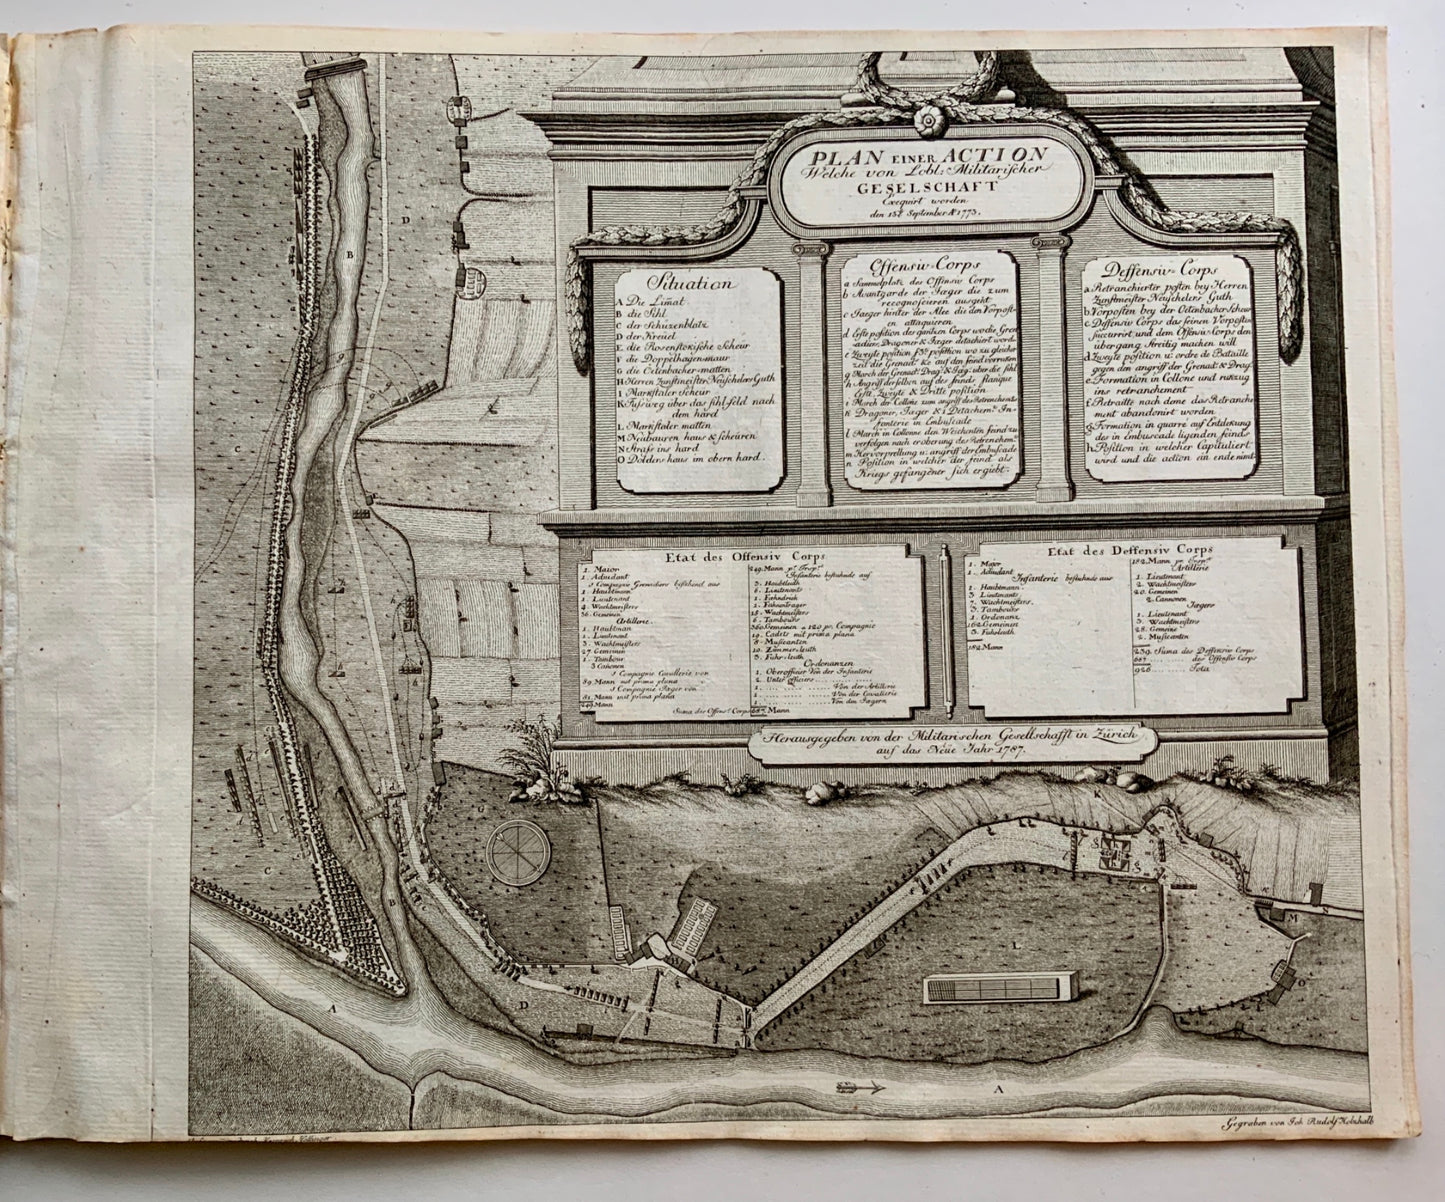 PLAN EINER ACTION
Welche von Lobl: Militarischer
GESELSCHAFT
Exequirt worden
den 15t September Ao 1773.
Situation
A Die Limat
B die Sihl
C der Schüzenblatz
D der Kreuel
E die Rosenstokische Scheur
F die Doppelhagenmaur
G die Oetenbacher matten
H Herren Zunftmeister Neüschelers Guth
I Markstaler Scheur
K Fussweg über das sihl feld nach
dem hard
L Markstaler matten
M Neübauren haus & scheüren
N Strass ins hard
O Dolders haus im obern hard.
Offensiv-Corps
a Sammelplatz des Offensiv Corps
b Avantgarde der Jaeger die zum
recognoscieren ausgeht
c Jaeger hinter der Alee die den Vorpost-
en attaquieren
d Este position des gantzen Corps wo die Gren
adier, Dragoner & Jaeger detachiert word.
e Zweyte position f 3te position wo zu gleicher
zeit die Grenad: &c auf den feind vorruken
g March der Grenad: Drag: & Jäg: uber die sihl
h Angriff derselben auf des feinds flanque
Erst, Zweyte & Dritte position
i March der Collone zum angriff des Retrenchemts
k Dragoner, Jaeger & 1 Detachemt. In-
fanterie in Embuscade
l March in Collonne den Weichenten feind zu
verfolgen nach eroberung des Retrenchemts
m Hervorprellung u: angriff der Embuscade
n Position in welcher der feind als
Kriegs gefangener sich ergiebt.
Deffensiv-Corps
a Retranchierter posten bey Herren
Zunftmeister Neüschelers Guth
b Vorposten bey der Oetenbacher Scheur
c Deffensiv Corps das seinen Vorposten
succurrirt und dem Offensiv Corps den
übergang streitig machen will
d Zweyte position u: ordre de Bataille
gegen den angriff der Grenad: & Drag:
e Formation in Collone und rukzug
ins retranchement
f Retraitte nach deme das Retranche
ment abandonirt worden
g Formation in quarré auf Entdekung
des in embuscade ligenden feinds
h Position in welcher Capituliert
wird und die action ein ende nimt
Etat des Offensiv Corps
1. Maior
1. Adiudant
1 Compagnie Grenadiers bestehend aus
1. Haubtman
1. Lieutenant
4. Wachtmeisters
36. Gemeinen
Artillerie.
1. Haubtman
1. Lieutenant
3. Wachtmeisters
27. Gemeinen
1. Tambour
3 Canonen
1 Compagnie Cavallerie von
89. Mann mit prima plana
1 Compagnie Jaeger von
81. Mann mit prima plana
249. Mann
249. Mann pr. Transpt
Infanterie bestuhnde auf
3. Haubtleuth
6. Lieutenants
1. Fahndrich
1. Fahnentrager
15. Wachtmeisters
6. Tambours
360. Gemeinen a 120 pr. Compagnie
19. Cadets mit prima plana
8. Musicanten
10. Zimmerleuth
3. Fuhr leuth
Ordonanzen
1. Oberofficier Von der Infanterie
2. Unter officiers
1. Von der Artillerie
1. Von der Cavallerie
1. Von den Jagern
Suma des Offens: Corps 687. Mann
Etat des Deffensiv Corps
1. Major
1. Adiudant
Infanterie bestuhnde aus
1. Haubtmann
3. Lieutenants
7. Wachtmeisters
3. Tambours
1. Ordonanz
162 Gemeinst
3. Fuhrleuth
182. Mann
182. Mann pr. Transpt
Artillerie
1. Lieutenant
2. Wachtmeisters
20. Gemeinen
2. Cannonen
Jagers
1. Lieutenant
3. Wachtmeisters
28. Gemeine
2. Musicanten
239. Suma des Deffensiv Corps
687. des Offensiv Corps
926. Tota
Herausgegeben von der Militarischen Gesellschafft in Zürich
auf das Neüe Jahr 1787.
Gegraben von Joh. Rudolf Holzhalb